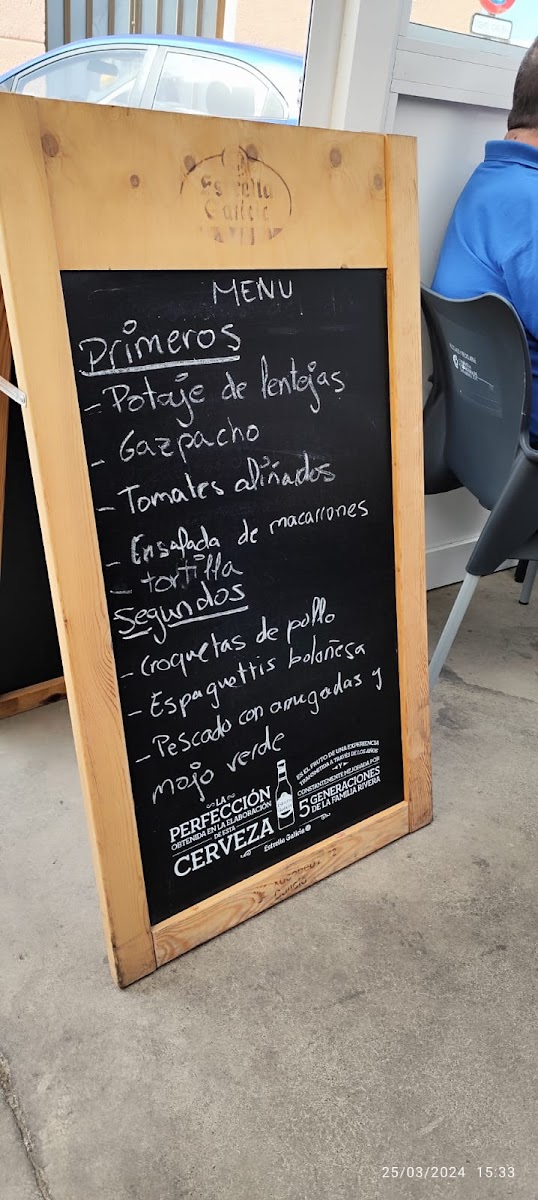 Estrella
Galicia
MENU
Primeros
- Potaje de lentejas
- Gazpacho
- Tomates aliñados
- Ensalada de macarrones
- tortilla
Segundos
- Croquetas de pollo
- Espaguettis boloñesa
- Pescado con arrugadas y
mojo verde
LA
PERFECCIÓN
OBTENIDA EN LA ELABORACIÓN
DE ESTA
CERVEZA
ES EL FRUTO DE UNA EXPERIENCIA
TRANSMITIDA A TRAVÉS DE LOS AÑOS
Y
CONSTANTEMENTE MEJORADA POR
5 GENERACIONES
DE LA FAMILIA RIVERA
Estrella Galicia
25/03/2024 15:33